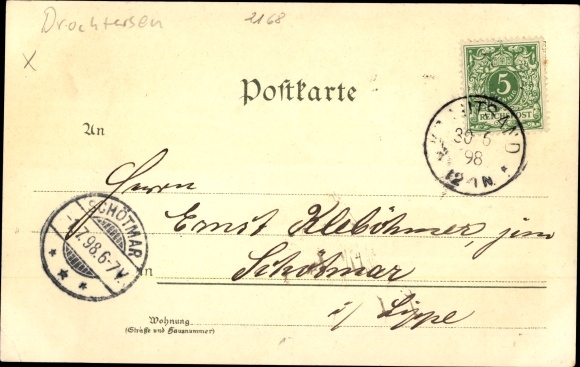 Drochtersen 2168
X
Postkarte
5
REICHSPOST
KRAUTSAND
30 6
98
12-1N.
An
Herrn
Ernst Kleböhmer, jun
SCHÖTMAR
1.7.98.6-7V.
in
Schötmar
i/ Lippe
Wohnung
(Straße und Hausnummer)